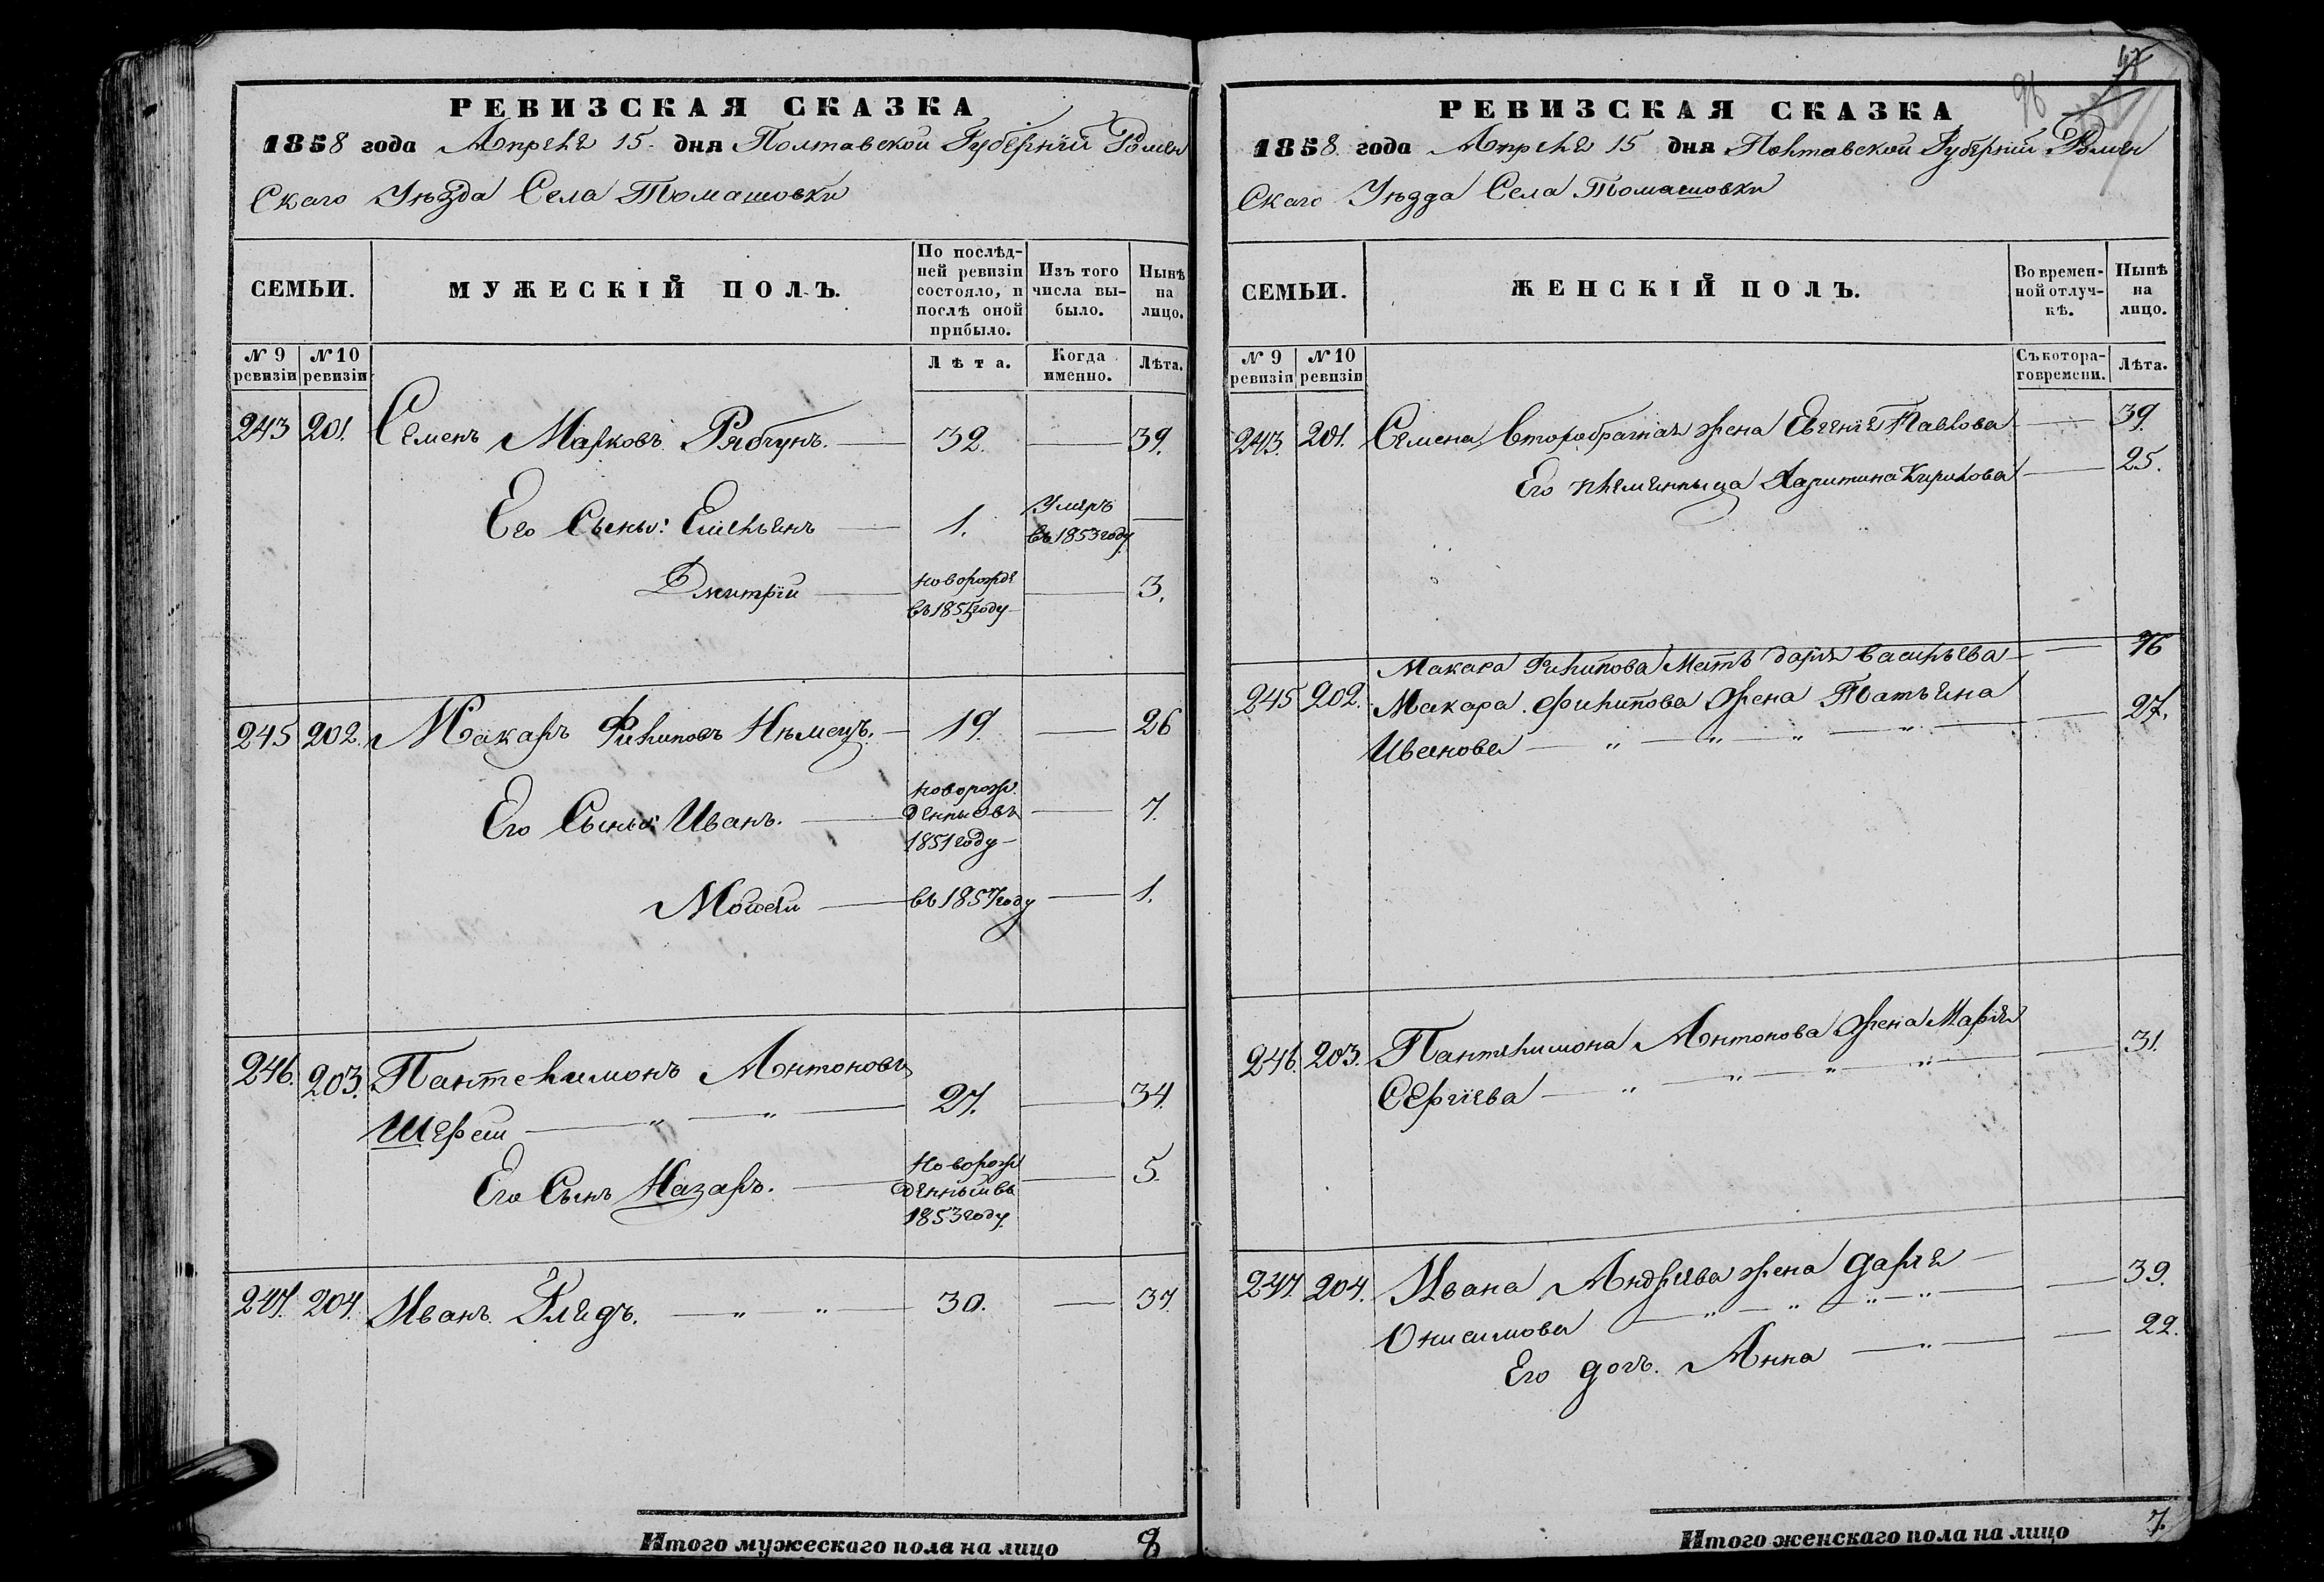 РЕВИЗСКАЯ СКАЗКА
1858 года Апреля 15. дня Полтавской Губерніи Ромен
Скаго Уѣзда Села Томашовки
СЕМЬИ.
МУЖЕСКІЙ ПОЛЪ.
По послѣд-
ней ревизіи
состояло, и
послѣ оной
прибыло.
Изъ того
числа вы-
было.
Нынѣ
на
лицо.
№ 9
ревизіи
№ 10
ревизіи
Лѣта.
Когда
именно.
Лѣта.
243 201. Семенъ Марковъ Рябчунъ. — 32. — 39.
Его Сыны: Емельянъ — 1. Умеръ
въ 1853 году —
Дмитрій — новорожде
въ 1855 году — 3.
245 202. Макаръ Филиповъ Нѣмецъ. — 19. — 26
Его Сыны: Иванъ. — новорож
денный въ — 7.
1851 году —
Мойсей — въ 1857 году — 1.
246. 203. Пантелимонъ Антоновъ
— 27. — 34.
Его Сынъ Назаръ. — Новорож
денный въ — 5.
1853 году
247. 204. Иванъ — „ — „ — 30. — 37.
Итого мужескаго пола на лицо 8
96
РЕВИЗСКАЯ СКАЗКА
1858. года Апреля 15 дня Полтавской Губерніи Ромен
Скаго Уѣзда Села Томашовки
СЕМЬИ.
ЖЕНСКІЙ ПОЛЪ.
Во времен-
ной отлуч-
кѣ.
Нынѣ
на
лицо.
№ 9
ревизіи
№ 10
ревизіи
Съ котора-
го времени.
Лѣта.
243. 201. Семена второбрачная жена Евгенія Павлова — 39.
Его племянныца Харитина Кирилова — 25.
Макара Филипова Мать Дарія Васильева — 76
245 202. Макара Филипова Жена Татьяна
Иванова — „ — „ — „ — „ — 27.
246. 203. Пантелимона Антонова Жена Марія
Сергіева — „ — „ — „ — „ — 31.
247. 204. Ивана Андрѣева жена Дарія —
Онисимова — „ — „ — „ — „ — 39.
Его дочъ. Анна — „ — 22.
Итого женскаго пола на лицо 7.